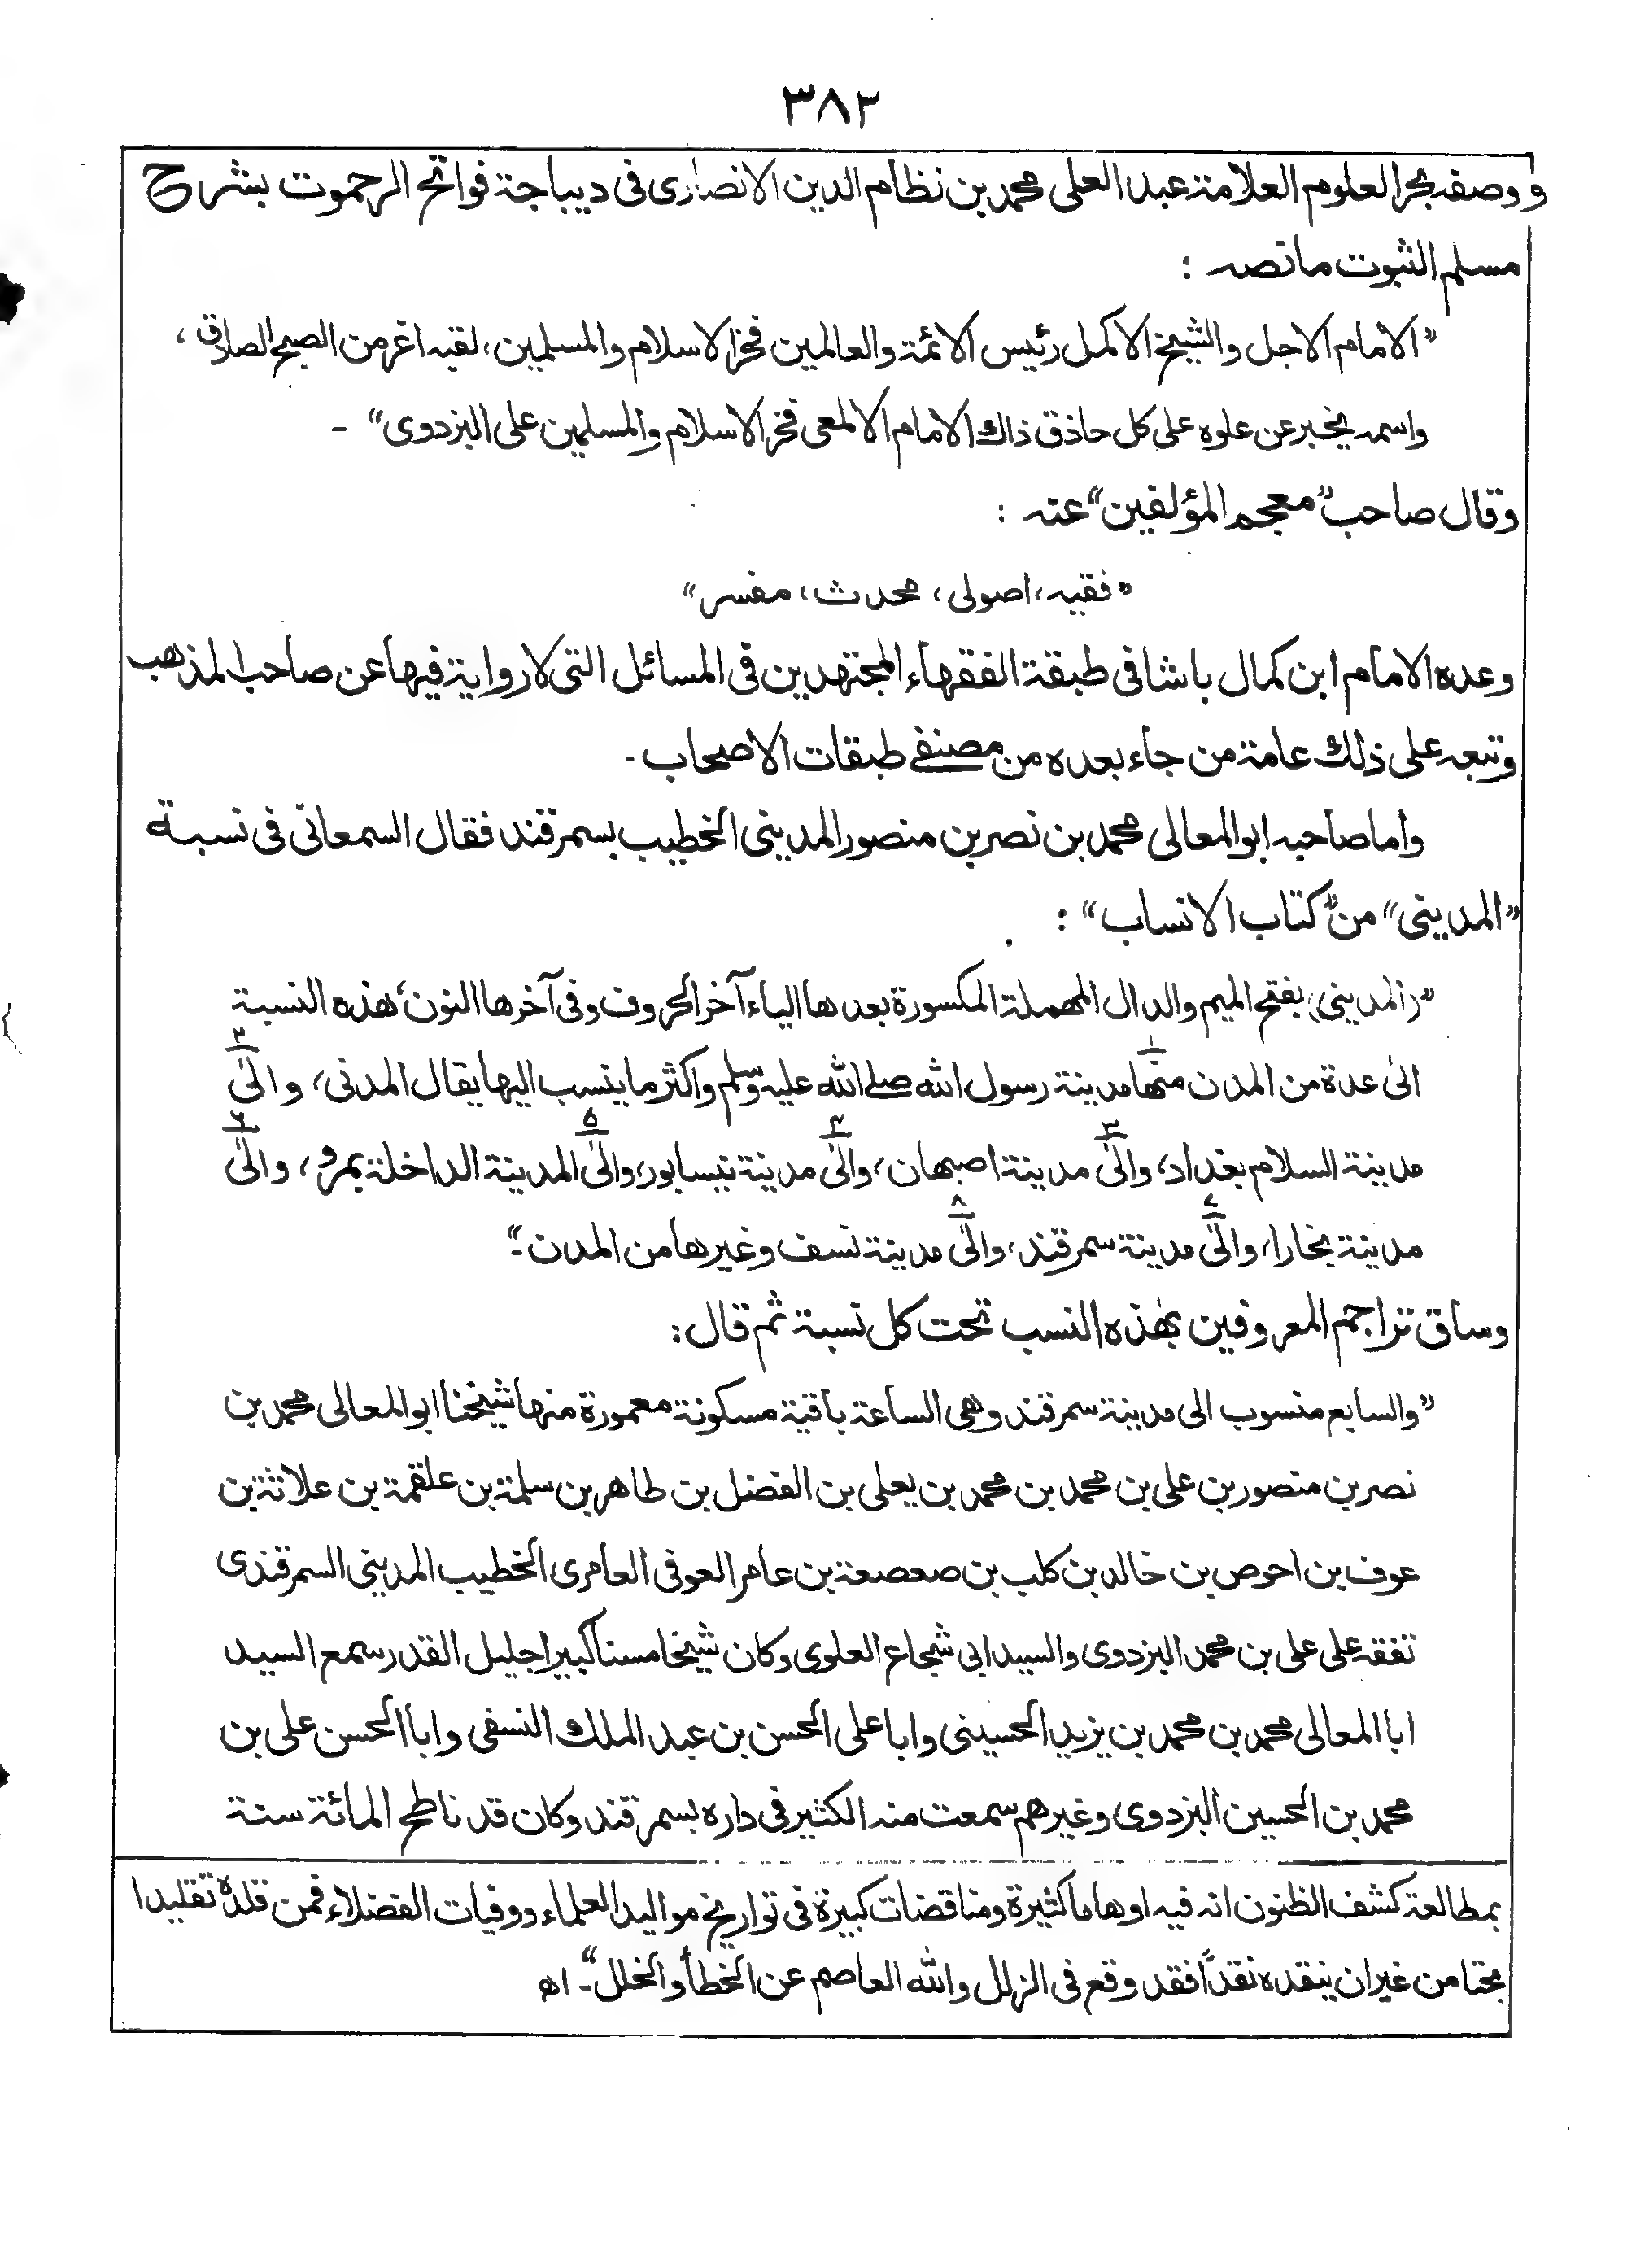 ٣٨٢
ووصفه بحر العلوم العلامة عبد العلى محمد بن نظام الدين الانصارى فى ديباجة فواتح الرحموت بشرح
مسلم الثبوت ما نصه :
”الامام الاجل والشيخ الاكمل رئيس الائمة والعالمين فخر الاسلام والمسلمين، لقبه اغر من الصبح الصادق ،
واسمه يخبر عن علوه على كل حاذق ذاك الامام الالمعى فخر الاسلام والمسلمين على البزدوى“ -
وقال صاحب ”معجم المؤلفين“ عنه :
”فقيه، اصولى، محدث، مفسر“
وعده الامام ابن كمال باشا فى طبقة الفقهاء المجتهدين فى المسائل التى لا رواية فيها عن صاحب المذهب
وتبعه على ذلك عامة من جاء بعده من مصنفے طبقات الاصحاب -
واما صاحبه ابو المعالى محمد بن نصر بن منصور المدينى الخطيب بسمرقند فقال السمعانى فى نسبة
”المدينى“ من ”كتاب الانساب“ :
”(المدينى) بفتح الميم والدال المهملة المكسورة بعدها الياء آخر الحروف وفى آخرها النون، هذه النسبة
الىٰ عدة من المدن ١ منها مدينة رسول الله صلے الله عليه وسلم واكثر ما ينسب اليها يقال المدنى، ٢ والىٰ
مدينة السلام بغداد، ٣ والىٰ مدينة اصبهان، ٤ والىٰ مدينة نيسابور، ٥ والىٰ المدينة الداخلة بمرو، ٦ والىٰ
مدينة بخارا، ٧ والىٰ مدينة سمرقند، ٨ والىٰ مدينة نسف وغيرها من المدن -“
وساق تراجم المعروفين بهٰذه النسب تحت كل نسبة ثم قال:
”والسابع منسوب الى مدينة سمرقند وهى الساعة باقية مسكونة معمورة منها شيخنا ابو المعالى محمد بن
نصر بن منصور بن على بن محمد بن محمد بن يعلى بن الفضل بن طاهر بن سلمة بن علقمة بن علاثة بن
عوف بن احوص بن خالد بن كلب بن صعصعة بن عامر العوفى العامرى الخطيب المدينى السمرقندى
تفقه على على بن محمد البزدوى والسيد ابى شجاع العلوى وكان شيخا مسنا كبيرا جليل القدر سمع السيد
ابا المعالى محمد بن محمد بن يزيد الحسينى وابا على الحسن بن عبد الملك النسفى وابا الحسن على بن
محمد بن الحسين البزدوى وغيرهم سمعت منه الكثير فى داره بسمرقند وكان قد ناطح المائة سنة
بمطالعة كشف الظنون انه فيه اوهاما كثيرة ومناقضات كبيرة فى تواريخ مواليد العلماء ووفيات الفضلاء فمن قلده تقليدا
بحتا من غير ان ينقده نقداً فقد وقع فى الزلل والله العاصم عن الخطأ والخلل“ - اھ